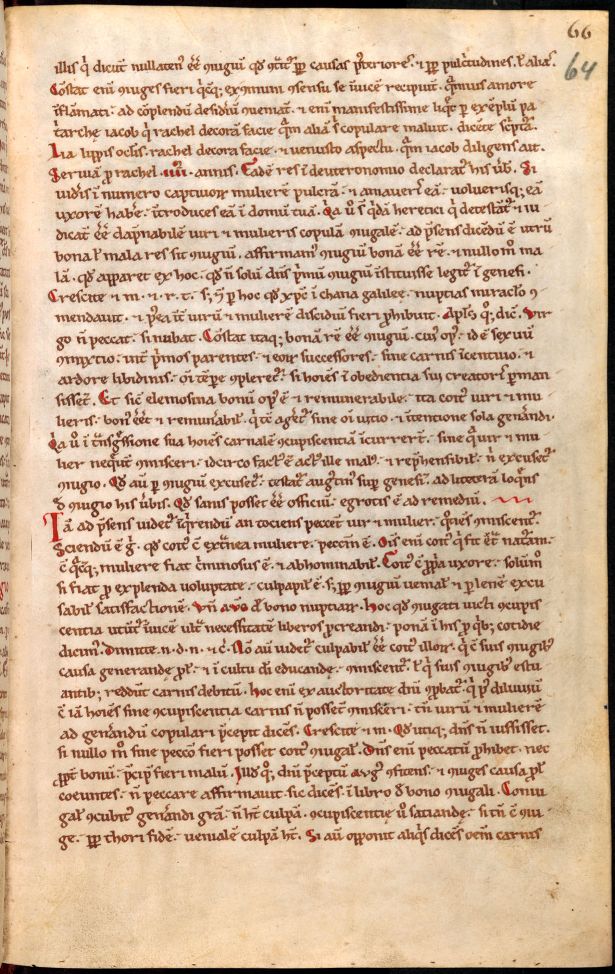 66
64
illis q̇ dicūt nullaten᷒ ēē ɔiugiū qđ ɔt̄hit᷒ ꝓp̄ causas p̄teriores · ⁊ ꝓp̄ pulc̄tudines · ł alias
Cōstat enī ɔiuges fieri q̇cq; ex ɔmuni ɔsensu se īuicē recipiūt · q̄mius amore
īflāmati · ad cōplendū desidiū ueniāt · ⁊ enī manifestissime liq̇t p exēplū pa
t̄arche iacob q̇ rachel decora facie q̄m alia s̄ copulare maluit · dicēte sc̄ptā ·
Lia lippis oclīs · rachel decora facie · ⁊ uenusto aspectu · q̄m iacob diligens ait ·
Seruiā p rachel · uii · annis · Eadē res ī deuteronomio declarat᷒ his ūb · Si
uidis ī numero captiuoꝝ mulierē pulcrā · ⁊ amaueris eā · uoluerisq; eā
uxorē habe · ītroduces eā ī domū tuā · Q̄a ū s̄ q̇dā heretici q̇ detestāt᷒ ⁊ iu
dicāt ēē dāpnabilē uiri ⁊ mulieris copulā ɔiugalē · ad p̄sens dicēdū ē utrū
bona ł mala res sit ɔiugiū · affirmam᷒ ɔiugiū bonā ēē rē · ⁊ nullo mº ma
lā · qđ apparet ex hoc · qđ n̄ solū dn̄s p̄mū ɔiugiū īstituisse legit᷒ ī genesi ·
Crescite ⁊ m · ⁊ · r · t · s; ⁊ p hoc qđ xp̄c ī chana galilee · nuptias miraclo ɔ
mendauit · ⁊ p̄ea īt uirū ⁊ mulierē discidiū fieri ꝓhibuit · Apls̄ q; dic̄ · Vir
go n̄ peccat · si nubat · Cōstat itaq; bonā rē ēē ɔiugiū · cui᷒ op᷒ · id ē sexuū
ɔmixtio · int p̄mos parentes · ⁊ eoꝝ successores · sine carnis īcentiuo · ⁊
ardore libidinis · oī tēpe ɔpleret᷒ · si hoīes ī obedientia sui creatoris pman
sissēt · Et sic̄ elemosina bonū op᷒ ē ⁊ remunerabile · ita coit᷒ uiri ⁊ mu
lieris · bon᷒ ēēt ⁊ remūabil᷒ · q̇ tc̄ aget᷒ sine oī uitio · ⁊ ītentione sola gen̄andi ·
Q̄a ū ī t̄nsg̊ssione sua hoīes carnalē ɔcupiscentiā īcurrert̄ · sine qua uir ⁊ mu
lier nequeūt ɔmisceri · idcirco fact᷒ ē act᷒ ille mal᷒ · ⁊ rep̄hensibil᷒ · n̄ excuset᷒
ɔiugio · Qđ aū p ɔiugiū excuset᷒ · testat᷒ aug᷒tin᷒ sup genesī · ad litterā loq̄ns
đ ɔiugio his ūbis · Qđ sanis posset ēē officiū · egrotis ē ad remediū ·
Iā ad p̄sens uidet᷒ īq̇rendū an tociens peccēt uir ⁊ mulier · q̊tiēs ɔmiscent᷒ ·
Sciendū ē g̊ · qđ coit᷒ c̄ ext̄nea muliere · peccm̄ ē · Oīs enī coit᷒ q̇ fit ɔt̄ naturā ·
c̄ q̇cq; muliere fiat c̄minosus ē · ⁊ abhominabil᷒ · Coit᷒ c̄ ꝓpa uxore · solūmº
si fiat ꝓ explenda uoluptate · culpabil᷒ ē · s; p ɔiugiū ueniał · ⁊ p lenē excu
sabil᷒ satisfactionē · Vn̄ aug᷒ d̄ bono nuptiaꝝ · Hoc qđ ɔiugati uicti ɔcupis
centia utūt᷒ īuicē ult necessitatē liberos ꝓcreandi · ponā ī his ꝓ q̇b; cotidie
dicim᷒ · Dimitte · n · d · n · ⁊ c̄ · Nō aū uidet᷒ culpabil᷒ ēē coit᷒ illoꝝ · q̇ c̄ suis ɔiugib᷒
causa generande ꝓl᷒ · ⁊ ī cultu dī educande · ɔmiscent᷒ · ł q̇ suis ɔiugib᷒ estu
antib; reddūt carnis debitū · Hoc enī ex auctoritate dn̄i ɔpbat᷒ · q̇ p᷒ diluuiū
c̄ iā hoīes sine ɔcupiscentia carnis n̄ possēt ɔmisceri · tn̄ uirū ⁊ mulierē
ad gen̄andū copulari p̄cepit dicēs · Crescite ⁊ m · Qđ utiq; dn̄s n̄ iussisset ·
si nullo mº sine pecc̄o fieri posset coit᷒ ɔiugal᷒ · Dn̄s enī peccatū ꝓhibet · nec
ꝓpt̄ bonū p̄cip̄ fieri malū · Illđ q; dn̄i p̄ceptū aug᷒ ɔfitens · ⁊ ɔiuges causa ꝓl᷒
coeuntes · n̄ peccare affirmauit · sic dicēs · ī libro đ bono ɔiugali · Coniu
gal᷒ ɔcubit᷒ gen̄andi gr̄a · n̄ ht̄ culpā · ɔcupiscentie ū satiande · si tn̄ c̄ ɔiu
ge · ꝓp̄ thori fidē · uenialē culpā ht̄ · Si aū opponit aliq̇s dicēs oēm carnis